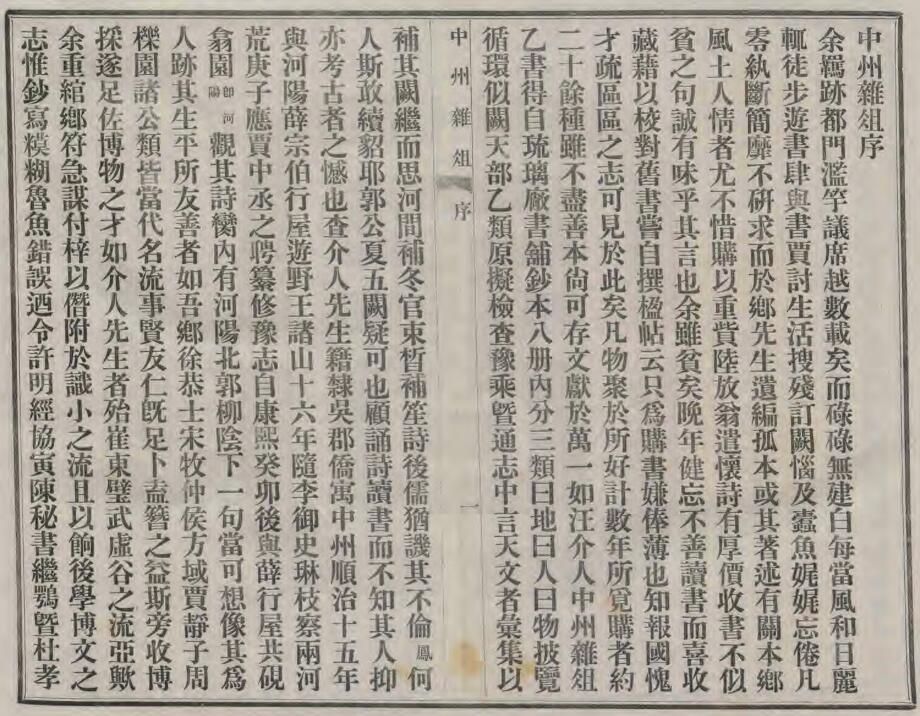 中州雜俎序
余羈跡都門濫竽議席越數載矣而碌碌無建白每當風和日麗
輒徒步遊書肆與書賈討生活搜殘訂闕惱及蠹魚娓娓忘倦凡
零紈斷簡靡不研求而於鄉先生遺編孤本或其著述有關本鄉
風土人情者尤不惜購以重貲陸放翁遣懷詩有厚價收書不似
貧之句誠有味乎其言也余雖貧矣晚年健忘不善讀書而喜收
藏藉以校對舊書嘗自撰楹帖云只爲購書嫌俸薄也知報國愧
才疏區區之志可見於此矣凡物聚於所好計數年所覓購者約
二十餘種雖不盡善本尙可存文獻於萬一如汪介人中州雜俎
乙書得自琉璃廠書鋪鈔本八册內分三類曰地曰人曰物披覽
循環似闕天部乙類原擬檢查豫乘曁通志中言天文者彙集以
中州雜俎 序 一
補其闕繼而思河間補冬官束晳補笙詩後儒猶譏其不倫鳳何
人斯敢續貂耶郭公夏五闕疑可也顧誦詩讀書而不知其人抑
亦考古者之憾也查介人先生籍隸吳郡僑寓中州順治十五年
與河陽薛宗伯行屋遊野王諸山十六年隨李御史琳枝察兩河
荒庚子應賈中丞之聘纂修豫志自康熙癸卯後與薛行屋共硯
翕園卽河陽觀其詩欒內有河陽北郭柳陰下一句當可想像其爲
人跡其生平所友善者如吾鄉徐恭士宋牧仲侯方域賈靜子周
櫟園諸公類皆當代名流事賢友仁旣足卜盍簪之益斯旁收博
採遂足佐博物之才如介人先生者殆崔東璧武虛谷之流亞歟
余重綰鄉符急謀付梓以僭附於識小之流且以餉後學博文之
志惟鈔寫糢糊魯魚錯誤迺令許明經協寅陳秘書繼鶚曁杜孝